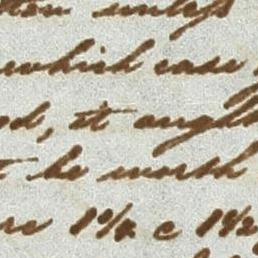 unless
which case
d, it ought
t be worth
re 1% c 1½